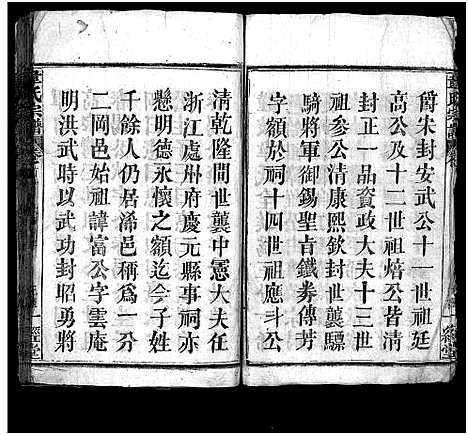 爵朱封安武公十一世祖廷
高公及十二世祖熺公皆清
封正一品資政大夫十三世
祖參公清康熙欽封世襲驃
騎將軍御錫聖貞鐵券傳芳
字額於祠十四世祖應斗公
清乾隆間世襲中憲大夫任
浙江處州府慶元縣事祠亦
懸明德永懷之額迄今子姓
千餘人仍居浠邑稱為一分
二岡邑始祖諱富公字雲庵
明洪武時以武功封昭勇將